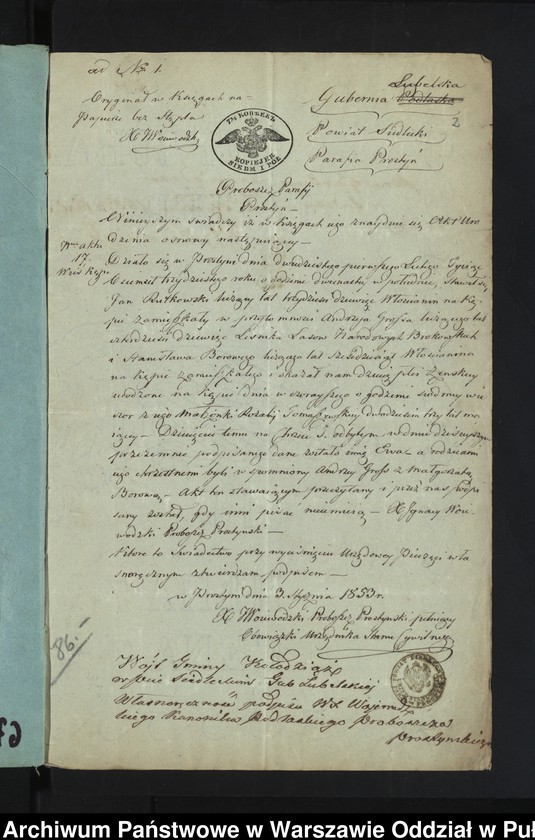 ad N 1.
Oryginał w Księgach na
Papierze bez Stępla
X Wowodzki
7½ КОПѢЕКЪ
KOPIEJEK
SIEDM I PÓŁ
Gubernia Lubelska
2
Powiat Siedlecki
Parafia Prostyń
Proboszcz Parafji
Prostyń
Niniejszym świadczy iż w księgach jego znajduje się Akt Uro
dzenia osnowy następującej
Nro aktu
17.
Wieś Kępie
Działo się w Prostyni dnia dwudziestego pierwszego Lutego Tysiąc
Ośmset trzydziestego roku o godzinie dwunastej w południe, Stawił się
Jan Rutkowski liczący lat trzydzieści dziewięć Włościanin na Kę
pie zamieszkały w przytomności Andrzeja Grossa liczącego lat
czterdzieści dziewięć Leśnika Lasów Narodowych
i Stanisława Borowego liczącego lat sześćdziesiąt Włościanina
na Kępie zamieszkałego i okazał nam dziecię płci żeńskiej
urodzone na Kępie dnia wczorayszego o godzinie siódmej wie
czor z jego Małżonki Rozalij Tomaszewskiej dwadzieścia trzy lat ma
iącey – Dziecięciu temu na Chrzcie S. odbytem w dniu dzisiejszym
przezemnie podpisanego dane zostało imię Ewa, a rodzicami
jego chrzestnemi byli wspomniony Andrzej Gross z Małgorzatą
Borową – Akt ten stawającym przeczytany i przez nas podpi
sany został, gdy inni pisać nieumieją – X Ignacy Wow
wodzki Proboszcz Prostyński –
Które to Świadectwo przy wyciśnięciu Urzędowej Pieczęci wła
snoręcznym stwierdzam podpisem –
w Prostyni dnia 3. Stycznia 1853 r.
X Wowodzki Proboszcz Prostyński pełniący
Obowiązki Urzędnika Stanu Cywilnego
86.-
Wójt Gminy Kołodziąż
w Pcie Siedleckim Gub Lubelskiej
Własnoręczność podpisu WX
Kanonika Podlaskiego Proboszcza
Prostyńskiego
Archiwum Państwowe w Warszawie Oddział w Puł